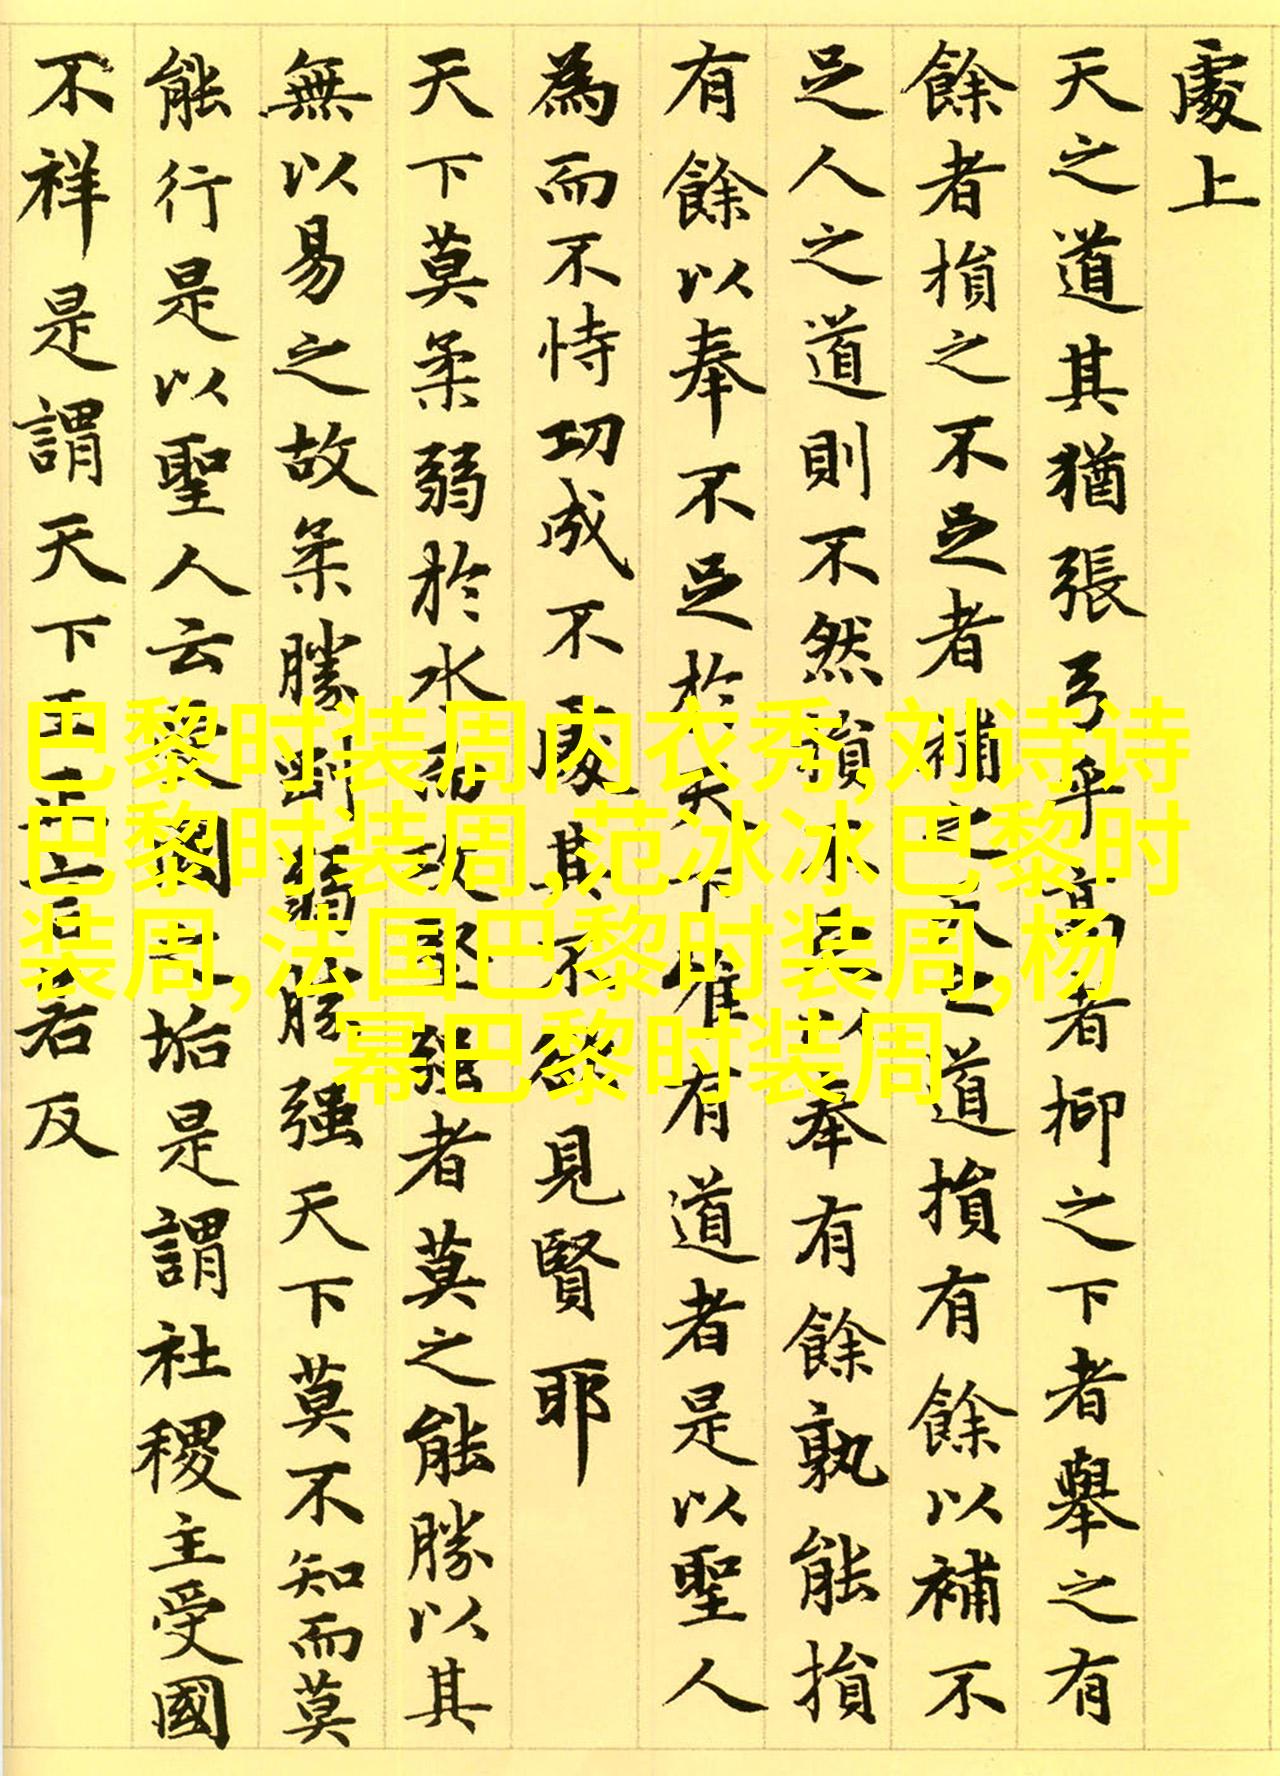 處上
天之道其猶張弓乎高者抑之下者舉之有
餘者損之不足者補之天之道損有餘以補不
足人之道則不然損不足以奉有餘孰能損
有餘以奉不足於天下唯有道者是以聖人
為而不恃功成不處其不欲見賢耶
天下莫柔弱於水而攻堅强者莫之能勝以其
無以易之故柔勝剛弱勝强天下莫不知而莫
能行是以聖人云受國之垢是謂社稷主受國
不祥是謂天下王正言若反
巴黎时装周内衣秀,刘诗诗
巴黎时装周,范冰冰巴黎时
装周,法国巴黎时装周,杨
幂巴黎时装周